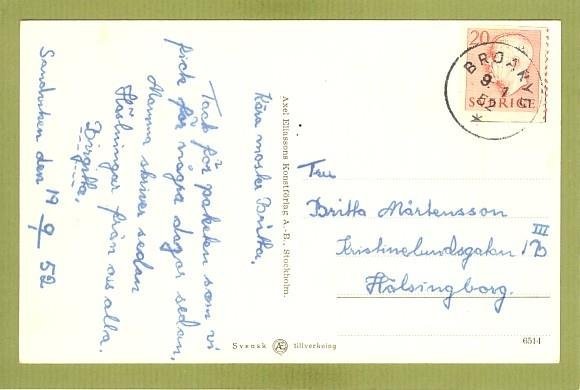 Sandviken den 19/9 52
Kära moster Britta.
Tack för paketen som vi
fick för några dagar sedan,
Mamma skriver sedan
Hälsningar från oss alla.
Birgitta.
Axel Eliassons Konstförlag A.-B., Stockholm.
20
SVERIGE
9. 1
52
Fru
Britta Mårtensson
Kristinelundsgatan 1B III
Hälsingborg.
Svensk AE tillverkning
6514